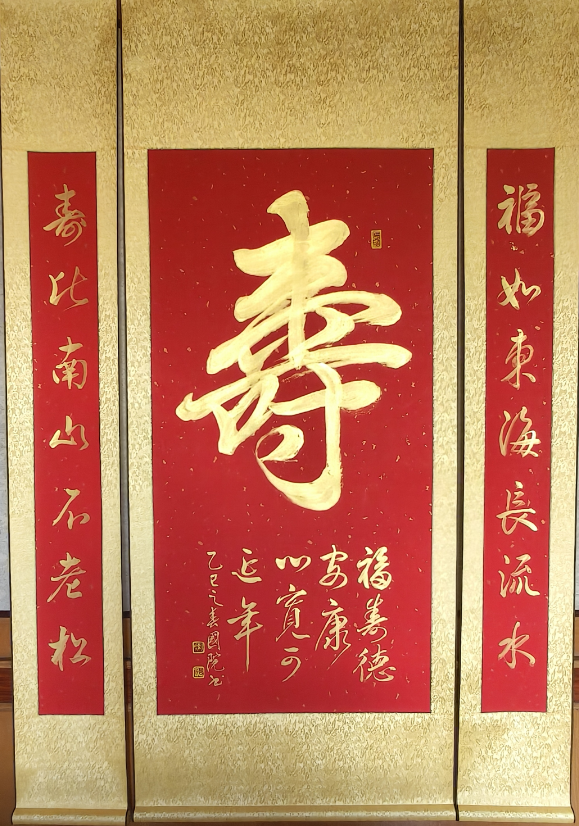 福如東海長流水
壽
福壽德
安康
心寬可
延年
乙巳之春國院书
寿比南山不老松